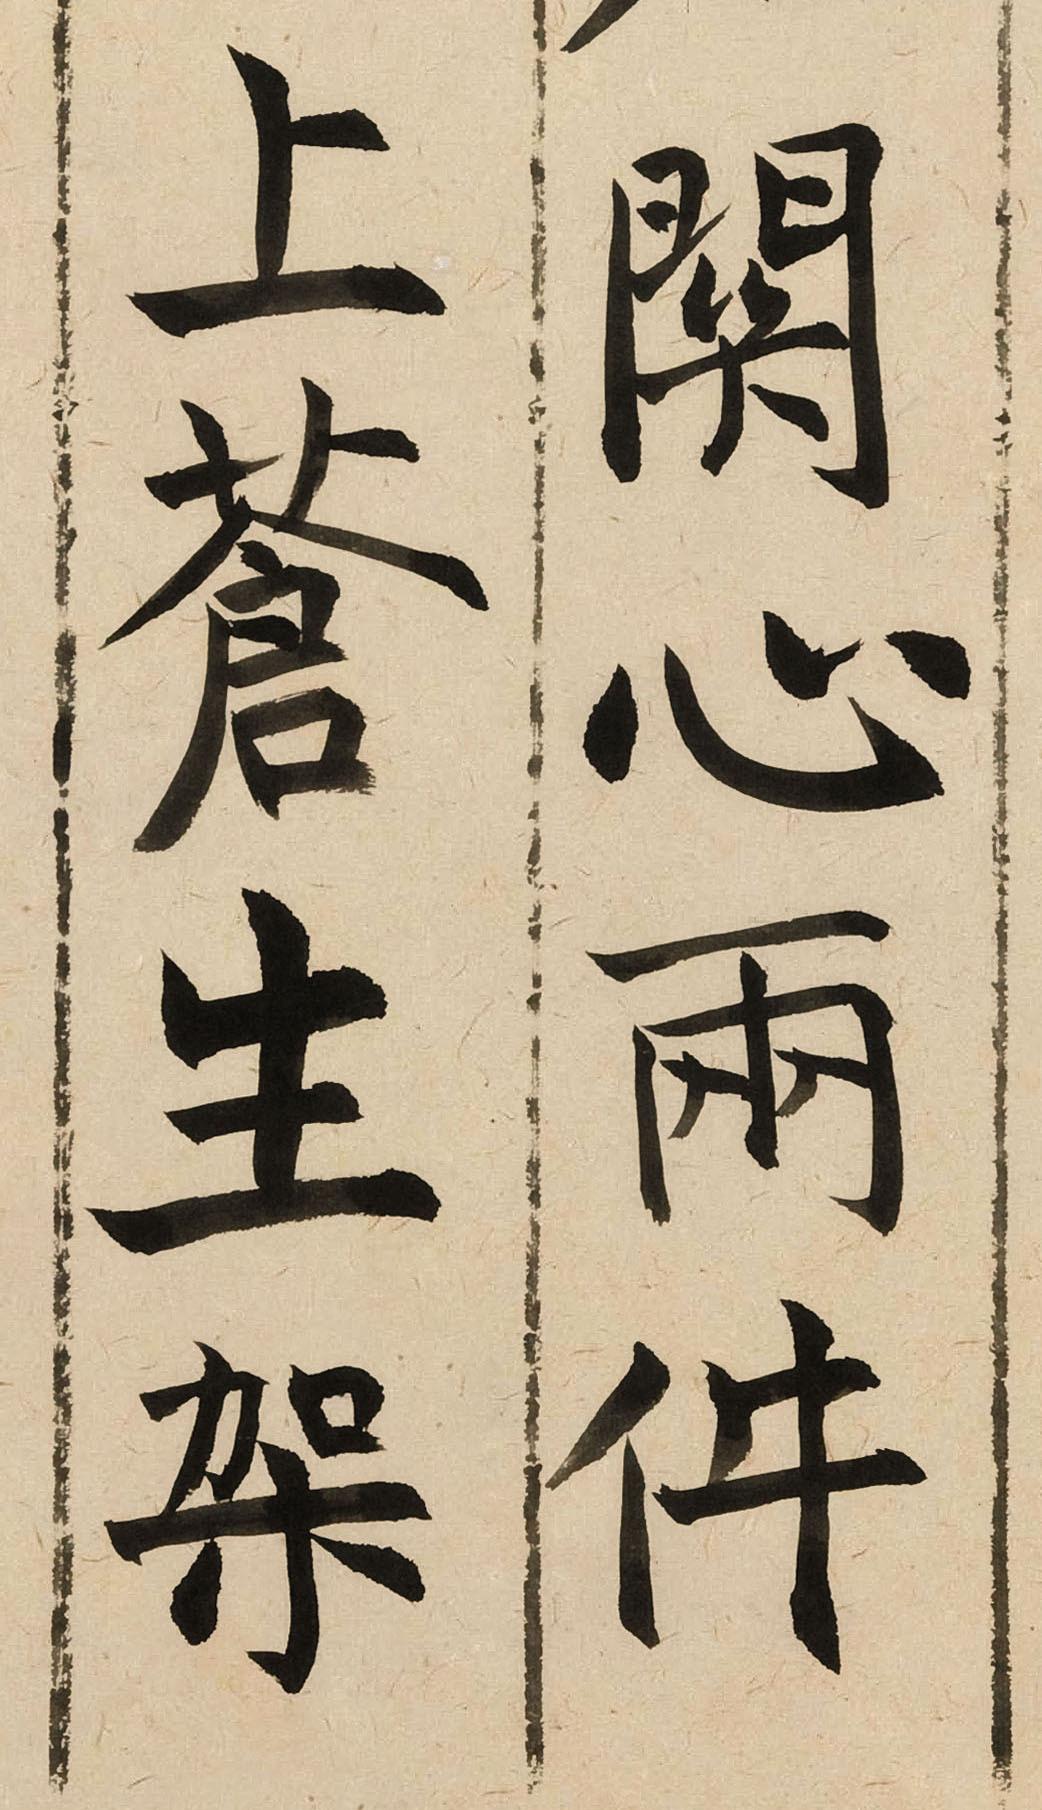 関心兩件
上蒼生架